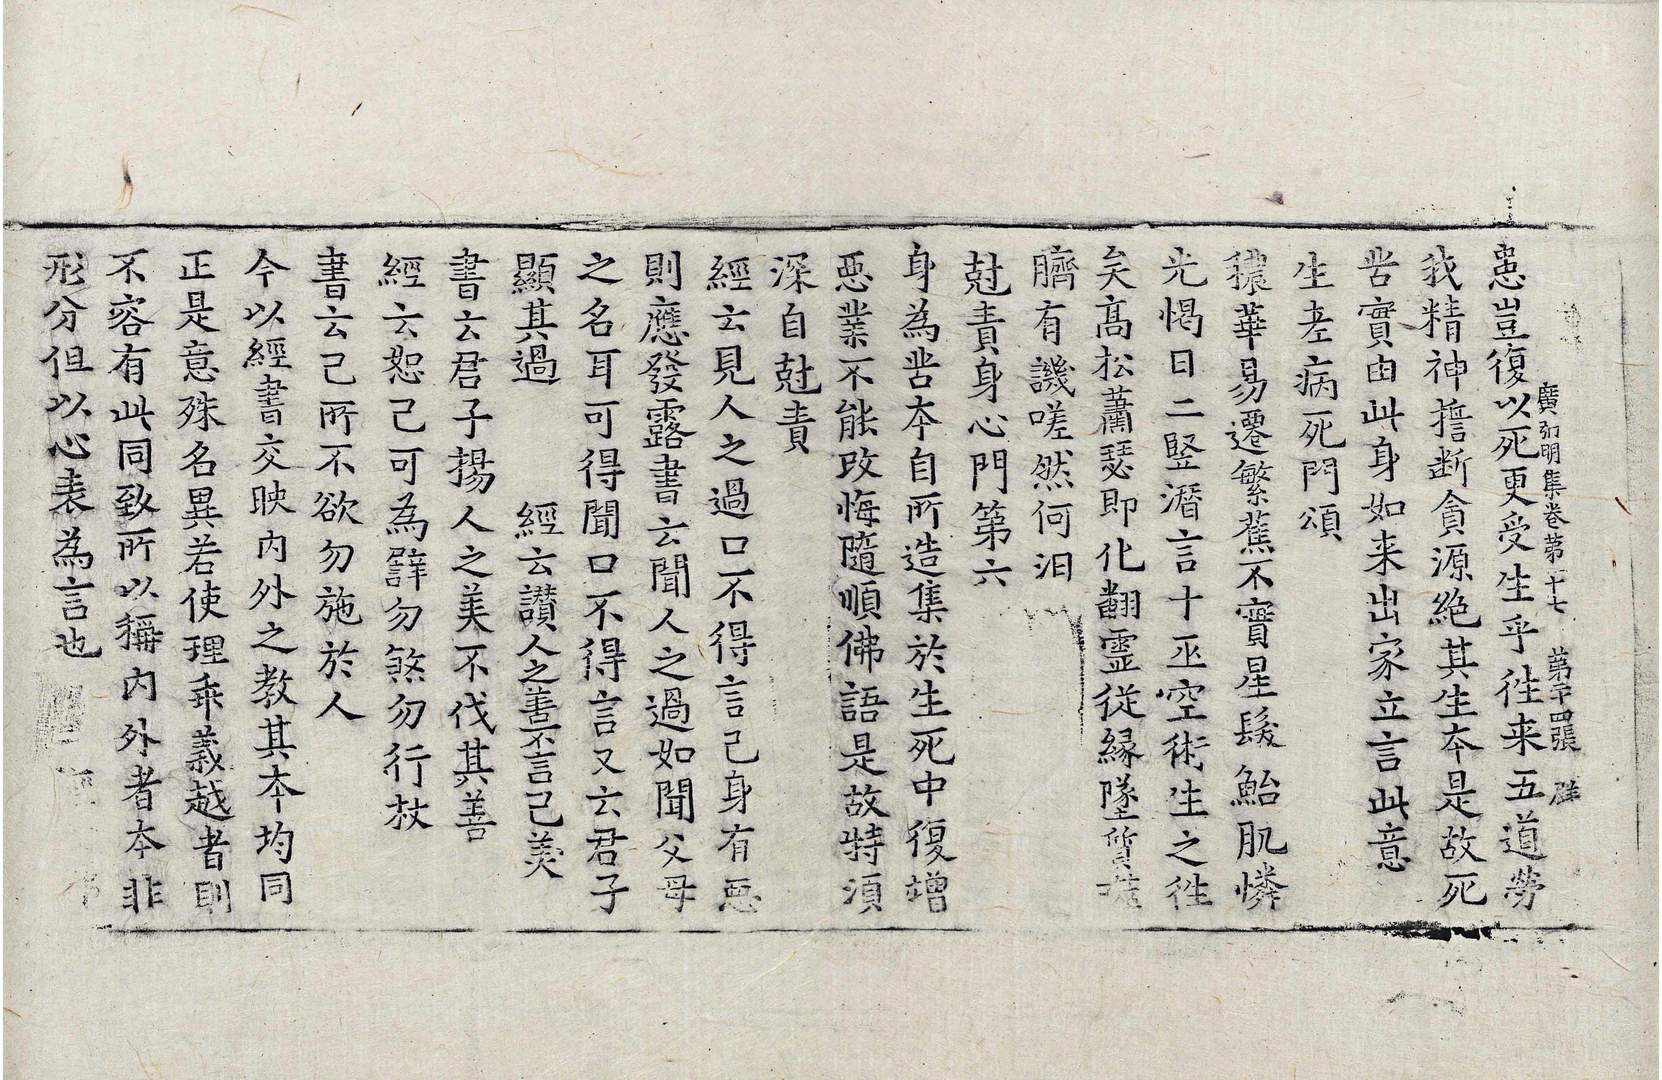 患豈復以死更受生乎徃来五道勞
廣弘明集卷第二十七　第二十四張　群
我精神擔断貪源絶其生本是故死
苦實由此身如来出家立言此意
生老病死門頌
穠華易遷繁蕉不實星髮鮐肌憐
光愒日二竪潛言十巫空術生之徃
矣高松蕭瑟即化翻靈従縁墜質
臍有譏嗟然何泪
尅責身心門第六
身為苦本自所造集於生死中復增
惡業不能改悔隨順佛語是故特湏
深自尅責
經云見人之過口不得言己身有惡
則應發露書云聞人之過如聞父母
之名耳可得聞口不得言又云君子
顯其過　經云讃人之善不言己美
書云君子揚人之美不伐其善
經云恕己可為辟勿煞勿行杖
書云己所不欲勿施於人
今以經書交映內外之教其本均同
正是意殊名異若使理乖義越者則
不容有此同致所以稱內外者本非
形分但以心表為言也